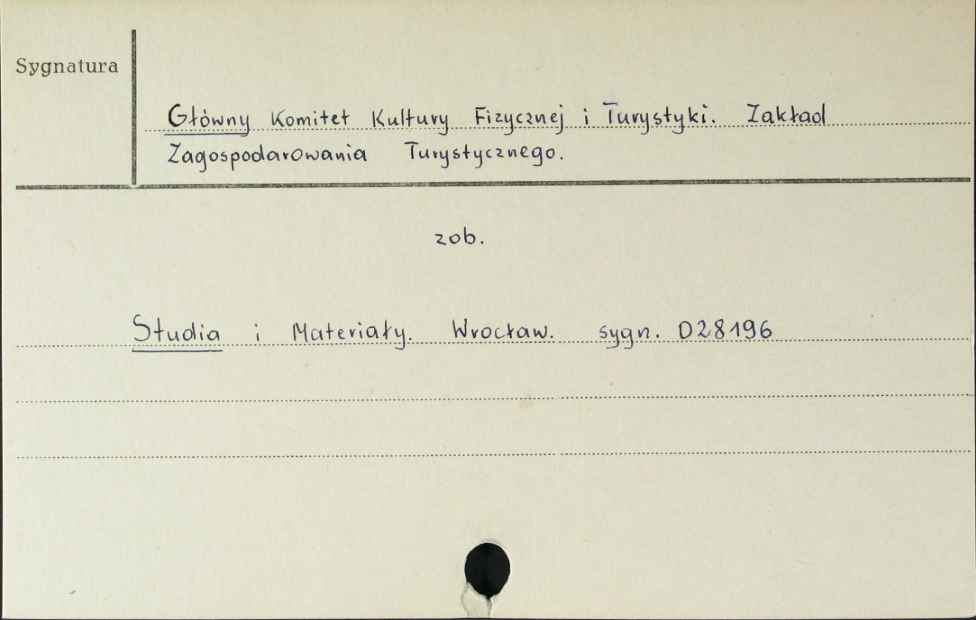 Sygnatura
Główny Komitet Kultury Fizycznej i Turystyki. Zakład
Zagospodarowania Turystycznego.
zob.
Studia i Materiały. Wrocław. sygn. D28196